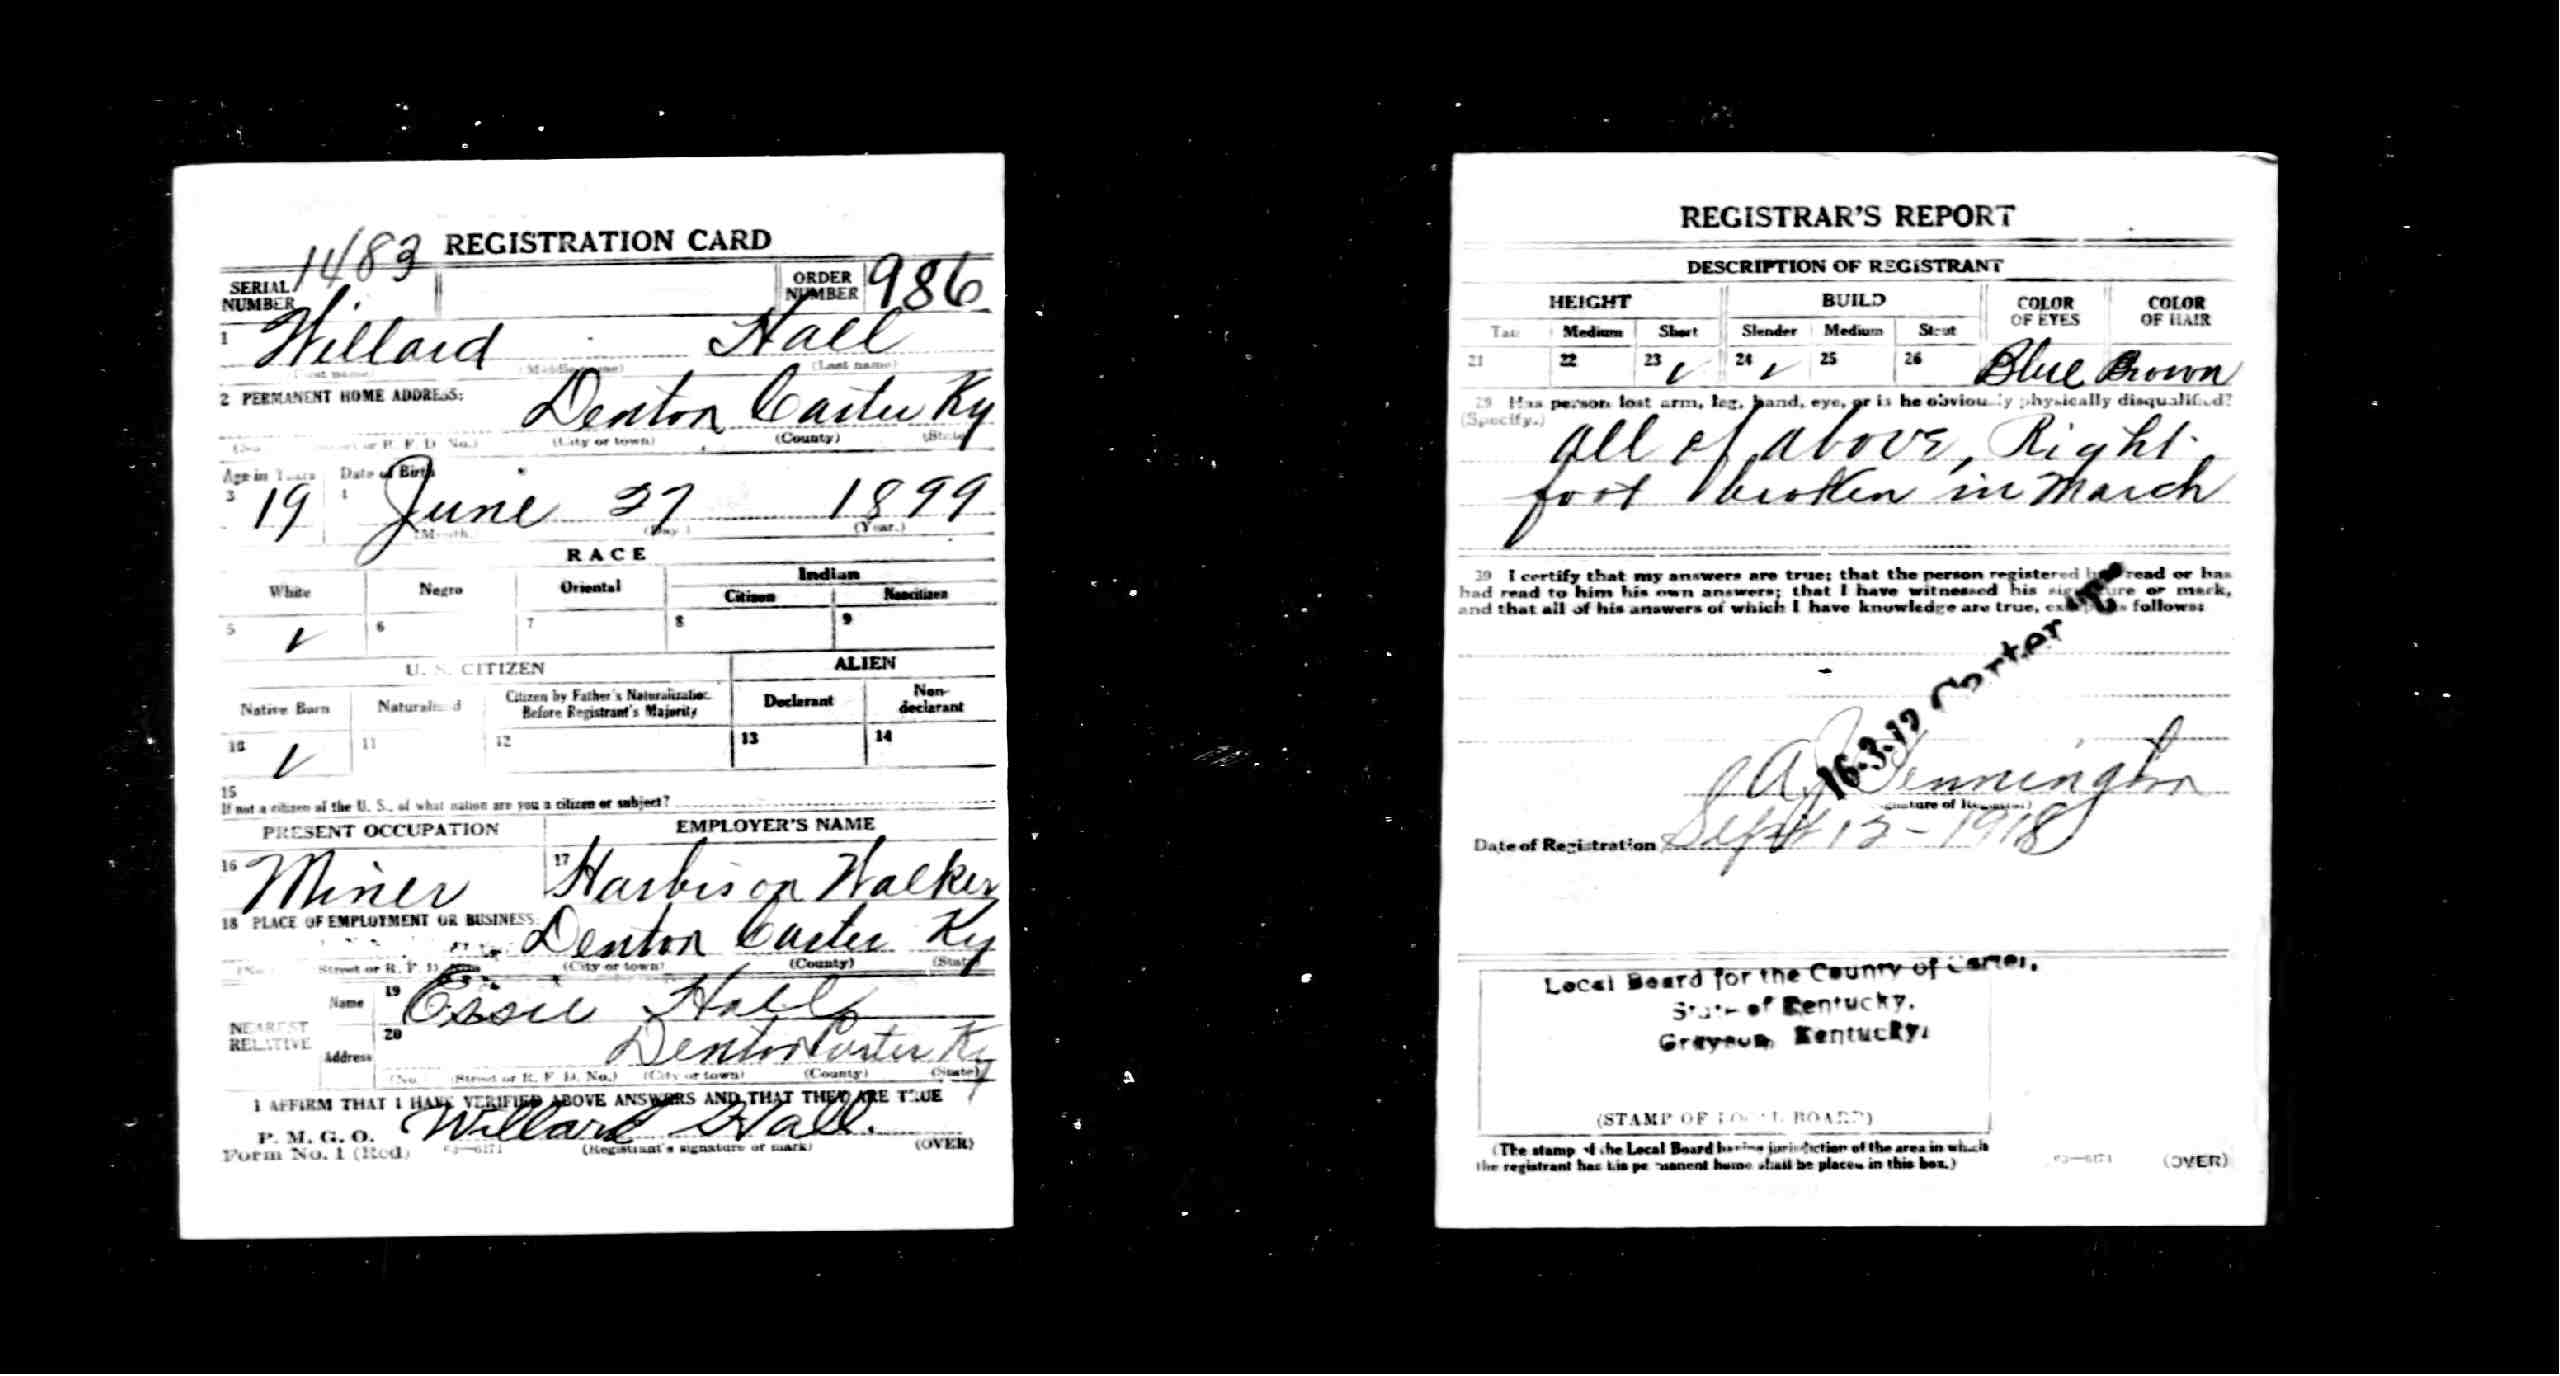 REGISTRATION CARD
SERIAL NUMBER 1483 ORDER NUMBER 986
1 Willard Hall
(First name) (Middle name) (Last name)
2 PERMANENT HOME ADDRESS:
Denton Carter Ky
(No.) (Street or R. F. D. No.) (City or town) (County) (State)
Age in Years Date of Birth
3 19 4 June 27 1899
(Month.) (Day.) (Year.)
RACE
White Negro Oriental Indian
Citizen Noncitizen
5 ✓ 6 7 8 9
U. S. CITIZEN ALIEN
Native Born Naturalized Citizen by Father's Naturalization Before Registrant's Majority Declarant Non-declarant
10 ✓ 11 12 13 14
15
If not a citizen of the U. S., of what nation are you a citizen or subject?
PRESENT OCCUPATION EMPLOYER'S NAME
16 Miner 17 Harbison Walker
18 PLACE OF EMPLOYMENT OR BUSINESS:
Denton Carter Ky
(No.) Street or R. F. D. (City or town) (County) (State)
NEAREST RELATIVE Name 19 Essie Hall
Address 20 Denton Carter Ky
(No.) (Street or R. F. D. No.) (City or town) (County) (State)
I AFFIRM THAT I HAVE VERIFIED ABOVE ANSWERS AND THAT THEY ARE TRUE
P. M. G. O.
Form No. 1 (Red) Willard Hall.
(Registrant's signature or mark) (OVER)
REGISTRAR'S REPORT
DESCRIPTION OF REGISTRANT
HEIGHT BUILD COLOR OF EYES COLOR OF HAIR
Tall Medium Short Slender Medium Stout
21 22 23 ✓ 24 ✓ 25 26 Blue Brown
29 Has person lost arm, leg, hand, eye, or is he obviously physically disqualified?
(Specify.)
all of above, Right
foot broken in March
30 I certify that my answers are true; that the person registered has read or has
had read to him his own answers; that I have witnessed his signature or mark,
and that all of his answers of which I have knowledge are true, except as follows:
16-3-12 Carter
Pennington
(Signature of Registrar)
Date of Registration Sept 12 - 1918
Local Board for the County of Carter,
State of Kentucky,
Grayson, Kentucky.
(STAMP OF LOCAL BOARD)
(The stamp of the Local Board having jurisdiction of the area in which
the registrant has his permanent home shall be placed in this box.)
(OVER)